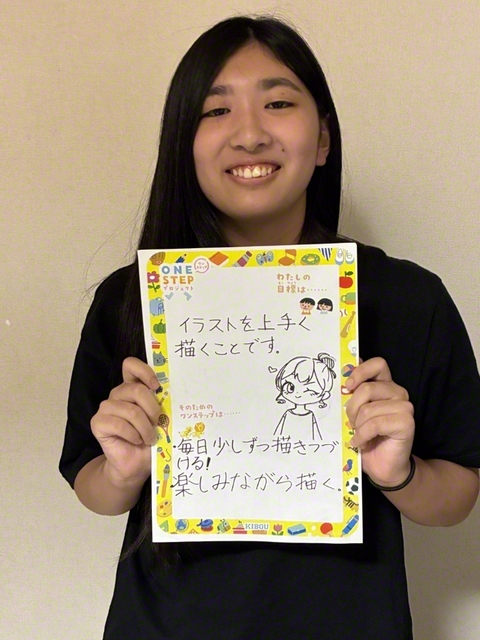 ONE
STEP
プロジェクト
わたしの
目標は……
イラストを上手く
描くことです。
そのための
ワンステップは……
・毎日少しずつ描きつづ
ける!
楽しみながら描く。
KIBOU